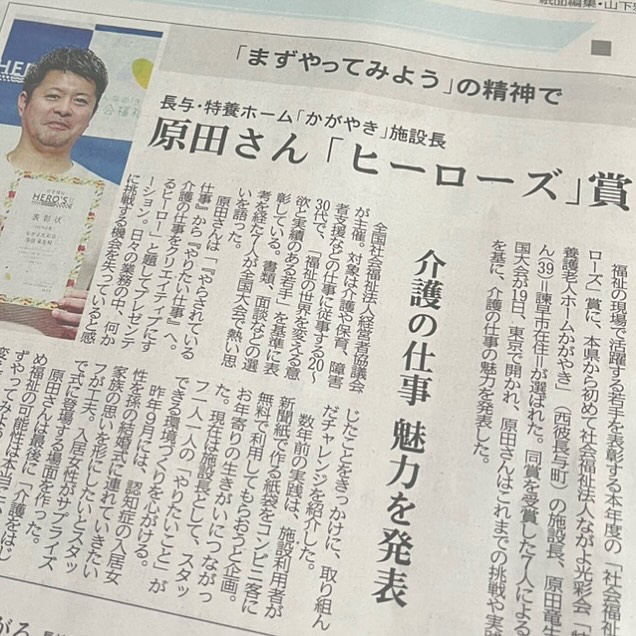 紙面編集・山下
「まずやってみよう」の精神で
長与・特養ホーム「かがやき」施設長
原田さん「ヒーローズ」賞
介護の仕事 魅力を発表
福祉の現場で活躍する若手を表彰する本年度の「社会福祉
ローズ」賞に、本県から初めて社会福祉法人ながよ光彩会「特
養護老人ホームかがやき」(西彼長与町)の施設長、原田竜生
ん(39)=諫早市在住=が選ばれた。同賞を受賞した7人による
国大会が19日、東京で開かれ、原田さんはこれまでの挑戦や実践
を基に、介護の仕事の魅力を発表した。
全国社会福祉法人経営者協議会
が主催。対象は介護や保育、障害
者支援などの仕事に従事する20～
30代で、「福祉の世界を変える意
欲と実績のある若手」を基準に表
彰している。書類、面談などの選
考を経た7人が全国大会で熱い思
いを語った。
原田さんは「『やらされている
仕事』から『やりたい仕事』へ。
介護の仕事をクリエイティブにす
るヒーロー」と題してプレゼンテ
ーション。日々の業務の中、何か
に挑戦する機会を失っていると感
じたことをきっかけに、取り組ん
だチャレンジを紹介した。
数年前の実践は、施設利用者が
新聞紙で作る紙袋をコンビニ客に
無料で利用してもらおうと企画。
お年寄りの生きがいにつながっ
た。現在は施設長として、スタッ
フ一人一人の「やりたいこと」が
できる環境づくりを心がける。
昨年9月には、認知症の入居女
性を孫の結婚式に連れていきたい
家族の思いを形にしたいとスタッ
フが工夫。入居女性がサプライズ
で式に登場する場面を作った。
原田さんは最後に「介護をはじ
め福祉の可能性は本当に
ずやってみよう
HERO'S
表彰状